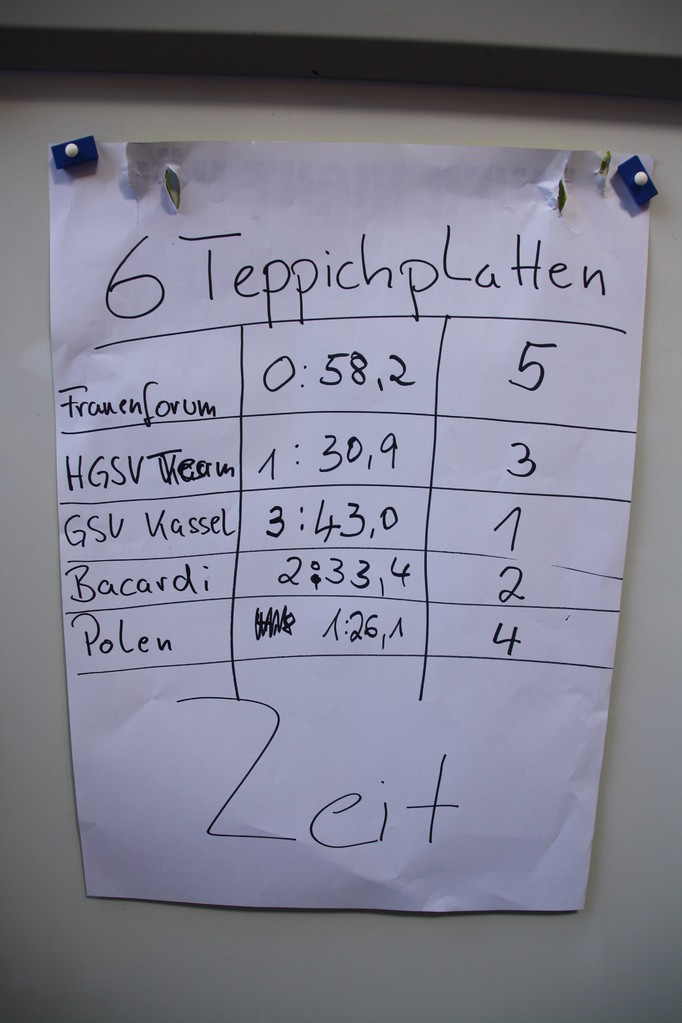 6 Teppichplatten
Frauenforum 0:58,2 5
HGSV Team 1:30,9 3
GSV Kassel 3:43,0 1
Bacardi 2:33,4 2
Polen 1:26,1 4
Zeit